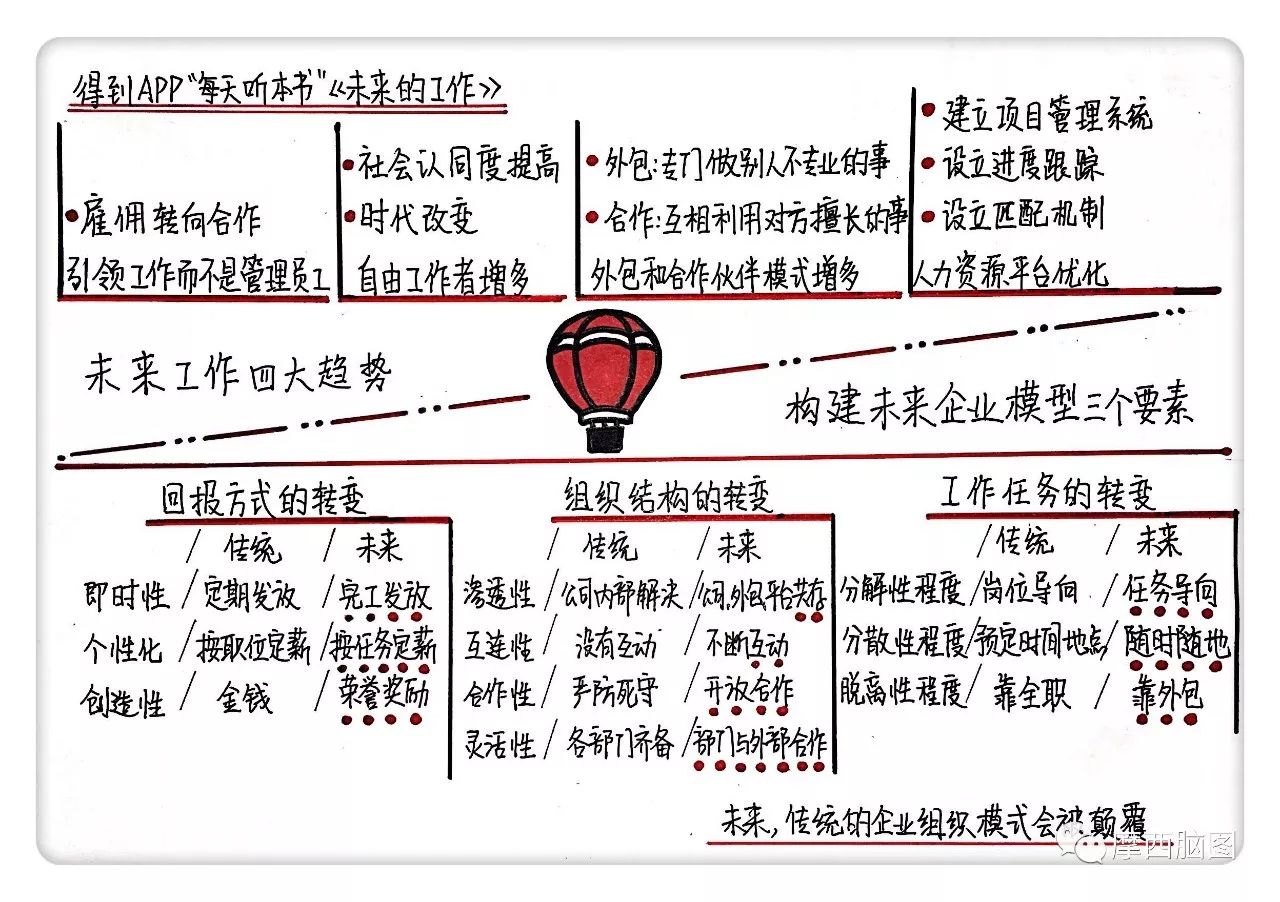 得到APP“每天听本书”《未来的工作》
•雇佣转向合作
引领工作而不是管理员工
•社会认同度提高
•时代改变
自由工作者增多
•外包:专门做别人不专业的事
•合作:互相利用对方擅长的事
外包和合作伙伴模式增多
•建立项目管理系统
•设立进度跟踪
•设立匹配机制
人力资源平台优化
未来工作四大趋势
构建未来企业模型三个要素
回报方式的转变
/传统 /未来
即时性/定期发放/完工发放
个性化/按职位定薪/按任务定薪
创造性/金钱/荣誉奖励
组织结构的转变
/传统/未来
渗透性/公司内部解决/公司,外包,平台共存
互连性/没有互动/不断互动
合作性/严防死守/开放合作
灵活性/各部门齐备/部门与外部合作
工作任务的转变
/传统 /未来
分解性程度/岗位导向/任务导向
分散性程度/预定时间地点/随时随地
脱离性程度/靠全职/靠外包
未来,传统的企业组织模式会被颠覆
摩西脑图